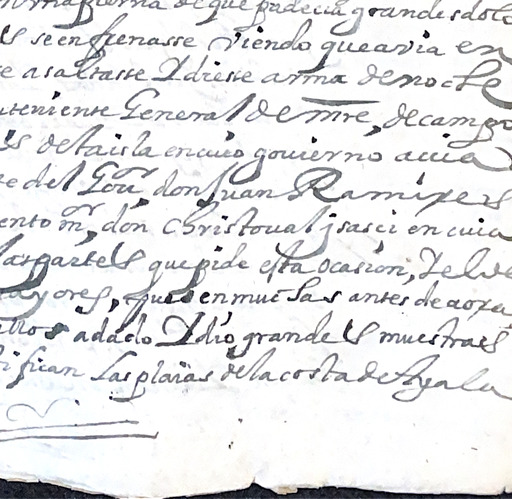 pierna de que padecia grandes dolo
se enfrenasse viendo que avia en
e asaltasse Y diese arma de noche
teniente General de mre, de campo
is de la isla en cuio govierno avia
te del Gor, don Juan Ramires
ento mr, don Christoval ysasi en cuia
las partes que pide esta ocasion, Y el de
ayores, que en muchas antes de aora
ellos a dado Y dio grandes muestras
ifican las plaias de la costa de Ayala